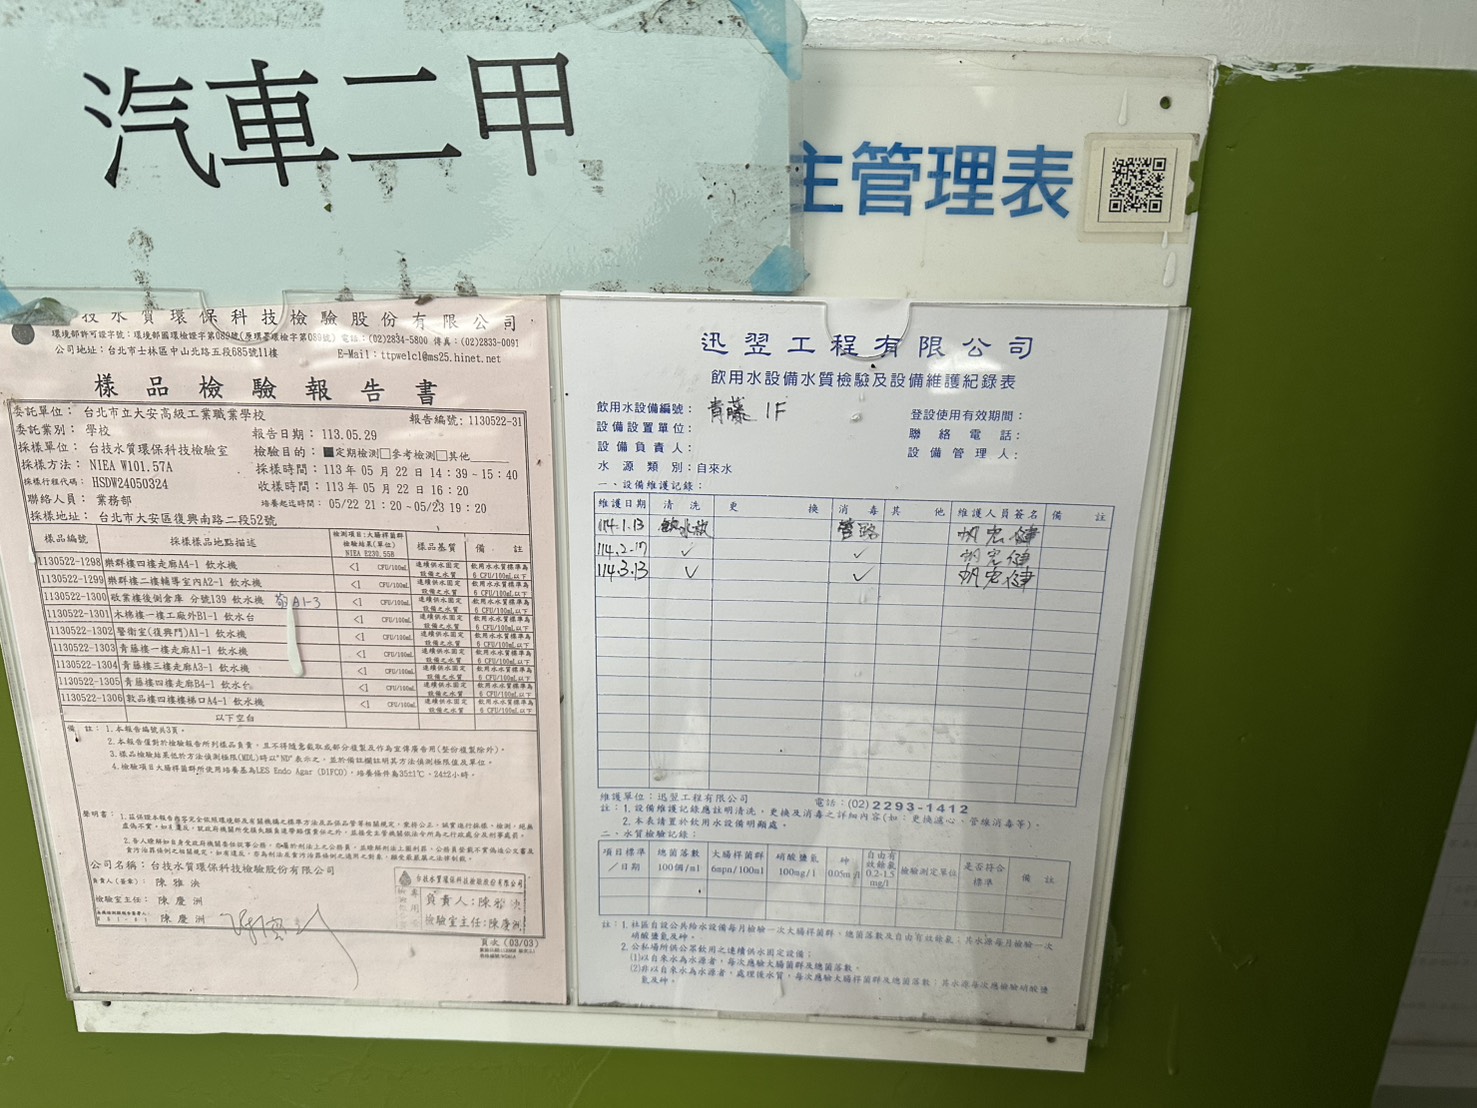 汽車二甲
主管理表
技水質環保科技檢驗股份有限公司
環境部許可證字號：環境部國環檢證字第089號(原環署環檢字第089號) 電話：(02)2834-5800 傳真：(02)2833-0091
公司地址：台北市士林區中山北路五段685號11樓
E-Mail：ttpwelcl@ms25.hinet.net
樣品檢驗報告書
委託單位：台北市立大安高級工業職業學校
報告編號：1130522-31
委託業別：學校
報告日期：113.05.29
採樣單位：台技水質環保科技檢驗室
檢驗目的：■定期檢測□參考檢測□其他
採樣方法：NIEA W101.57A
採樣時間：113年05月22日14：39-15：40
採樣行程代碼：HSDW24050324
收樣時間：113年05月22日16：20
聯絡人員：業務部
培養起迄時間：05/22 21：20~05/23 19：20
採樣地址：台北市大安區復興南路二段52號
樣品編號 採樣樣品地點描述 檢測項目:大腸桿菌群 檢驗結果(單位) NIEA E230.55B 樣品基質 備註
1130522-1298 樂群樓四樓走廊A4-1 飲水機 <1 CFU/100mL 連續供水固定設備之水質 飲用水水質標準為6 CFU/100mL以下
1130522-1299 樂群樓二樓輔導室內A2-1 飲水機 <1 CFU/100mL 連續供水固定設備之水質 飲用水水質標準為6 CFU/100mL以下
1130522-1300 敬業樓後側倉庫 分號139 飲水機 A1-3 <1 CFU/100mL 連續供水固定設備之水質 飲用水水質標準為6 CFU/100mL以下
1130522-1301 木棉樓一樓工廠外B1-1 飲水台 <1 CFU/100mL 連續供水固定設備之水質 飲用水水質標準為6 CFU/100mL以下
1130522-1302 警衛室(復興門)A1-1 飲水機 <1 CFU/100mL 連續供水固定設備之水質 飲用水水質標準為6 CFU/100mL以下
1130522-1303 青藤樓一樓走廊A1-1 飲水機 <1 CFU/100mL 連續供水固定設備之水質 飲用水水質標準為6 CFU/100mL以下
1130522-1304 青藤樓三樓走廊A3-1 飲水機 <1 CFU/100mL 連續供水固定設備之水質 飲用水水質標準為6 CFU/100mL以下
1130522-1305 青藤樓四樓走廊B4-1 飲水台 <1 CFU/100mL 連續供水固定設備之水質 飲用水水質標準為6 CFU/100mL以下
1130522-1306 敦品樓四樓樓梯口A4-1 飲水機 <1 CFU/100mL 連續供水固定設備之水質 飲用水水質標準為6 CFU/100mL以下
以下空白
備註：1.本報告編號共3頁。
2.本報告僅對於檢驗報告所列樣品負責，且不得隨意截取或部分複製及作為宣傳廣告用(整份複製除外)。
3.樣品檢驗結果低於方法偵測極限(MDL)時以"ND"表示之，並於備註欄註明其方法偵測極限值及單位。
4.檢驗項目大腸桿菌群所使用培養基為LES Endo Agar (DIFCO)，培養條件為35±1℃、24±2小時。
聲明書：
公司名稱：台技水質環保科技檢驗股份有限公司
負責人(簽章)：陳雅泱
檢驗室主任：陳慶洲
陳慶洲
台技水質環保科技檢驗股份有限公司
負責人:陳雅泱
檢驗室主任:陳慶洲
頁次 (03/03)
迅翌工程有限公司
飲用水設備水質檢驗及設備維護紀錄表
飲用水設備編號：青藤 1F
登設使用有效期間：
設備設置單位：
聯絡電話：
設備負責人：
設備管理人：
水源類別：自來水
一、設備維護記錄：
維護日期 清洗 更換 消毒 其他 維護人員簽名 備註
114.1.13 飲水機 管路
114.2.17 ✓ ✓
114.3.13 ✓ ✓
維護單位：迅翌工程有限公司
電話：(02)2293-1412
註：1.設備維護記錄應註明清洗，更換及消毒之詳細內容(如：更換濾心、管線消毒等)。
2.本表請置於飲用水設備明顯處。
二、水質檢驗記錄：
項目標準／日期 總菌落數 100個/ml 大腸桿菌群 6mpn/100ml 硝酸鹽氮 100mg/l 砷 0.05m /l 自由有效餘氯 0.2-1.5 mg/l 檢驗測定單位 是否符合標準 備註
註：1.社區自設公共給水設備每月檢驗一次大腸桿菌群，總菌落數及自由有效餘氯；其水源每月檢驗一次硝酸鹽氮及砷。
2.公私場所供公眾飲用之連續供水固定設備：
(1)以自來水為水源者，每次應驗大腸菌群及總菌落數。
(2)非以自來水為水源者，處理後水質，每次應驗大腸桿菌群及總菌落數；其水源每次應檢驗硝酸鹽氮及砷。